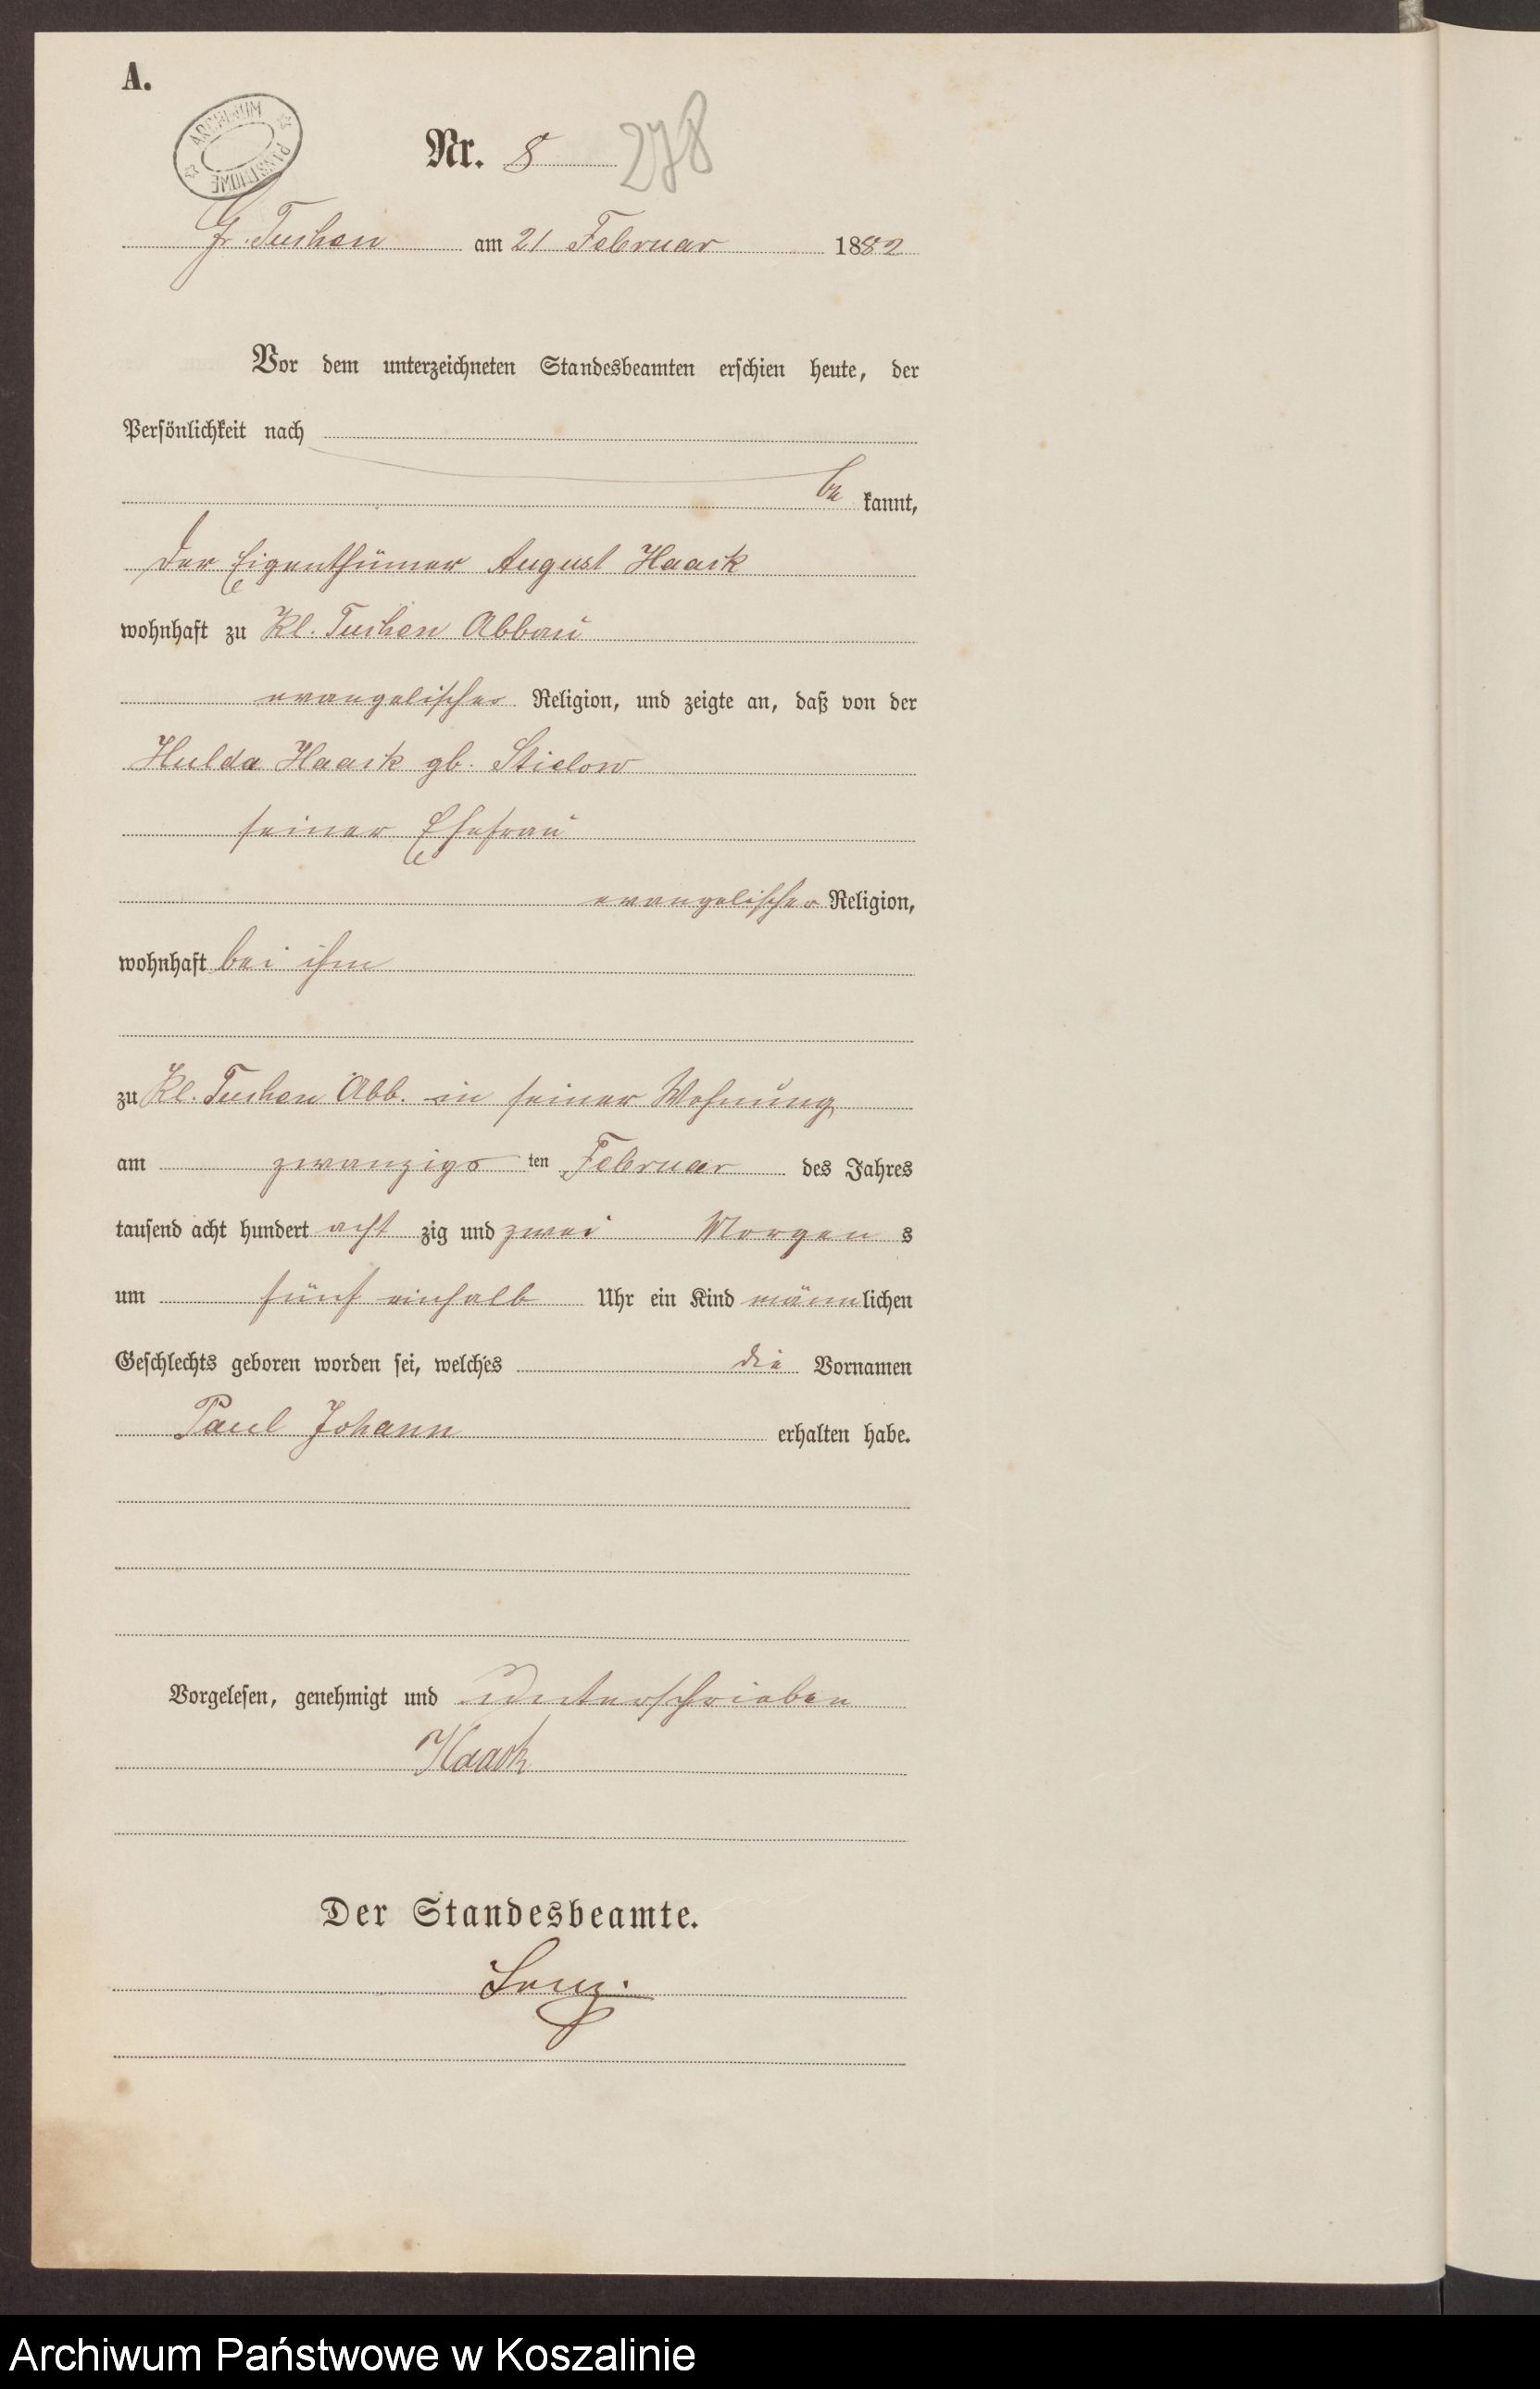 A.
ARCHIWUM PAŃSTWOWE
Nr. 8 278
Gr. Tuchen am 21 Februar 1882
Vor dem unterzeichneten Standesbeamten erschien heute, der
Persönlichkeit nach
be kannt,
der Eigenthümer August Haack
wohnhaft zu Kl. Tuchen Abbau
evangelischer Religion, und zeigte an, daß von der
Hulda Haack gb. Stielow
seiner Ehefrau
evangelischer Religion,
wohnhaft bei ihm
zu Kl. Tuchen Abb. in seiner Wohnung
am zwanzigs ten Februar des Jahres
tausend acht hundert acht zig und zwei Morgen s
um fünf einhalb Uhr ein Kind männlichen
Geschlechts geboren worden sei, welches die Vornamen
Paul Johann erhalten habe.
Vorgelesen, genehmigt und unterschrieben
Haack
Der Standesbeamte.
Archiwum Państwowe w Koszalinie